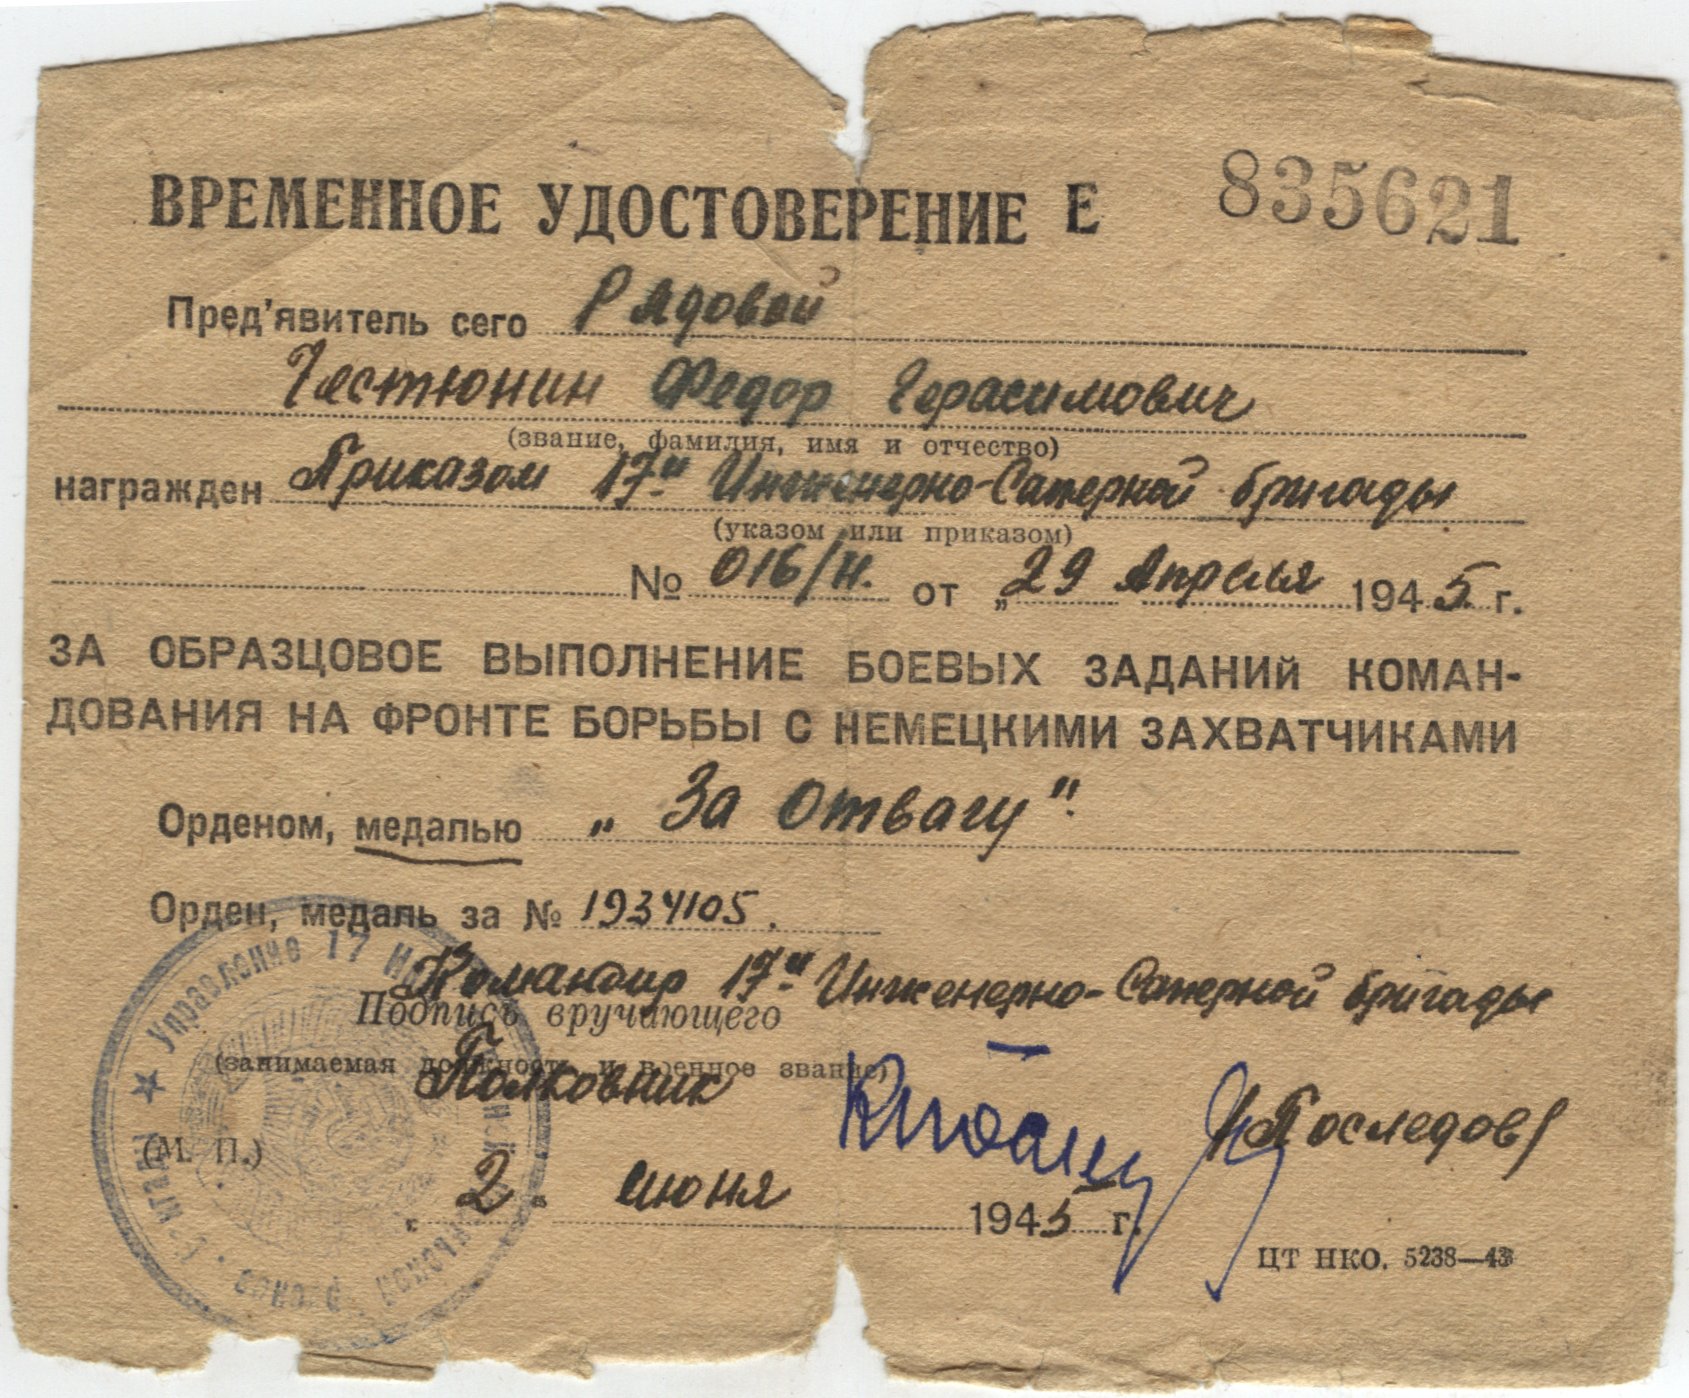 ВРЕМЕННОЕ УДОСТОВЕРЕНИЕ Е 835621
Пред'явитель сего Рядовой
Честюнин Федор Герасимович
(звание, фамилия, имя и отчество)
награжден Приказом 17й Инженерно-Саперной бригады
(указом или приказом)
№ 016/н. от „29 Апреля 1945 г.
ЗА ОБРАЗЦОВОЕ ВЫПОЛНЕНИЕ БОЕВЫХ ЗАДАНИй КОМАН-
ДОВАНИЯ НА ФРОНТЕ БОРЬБЫ С НЕМЕЦКИМИ ЗАХВАТЧИКАМИ
Орденом, медалью „За Отвагу".
Орден, медаль за № 1934105.
Командир 17й Инженерно-Саперной бригады
Подпись вручающего
(занимаемая должность и военное звание)
Полковник /Последов/
(М. П.)
„2" июня 1945 г.
ЦТ НКО. 5238—43
Управление 17